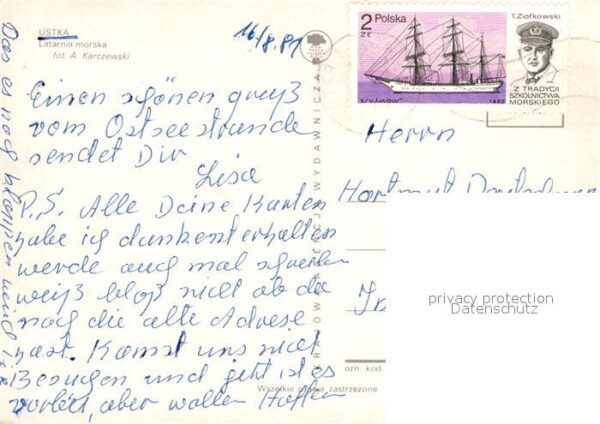 USTKA
Latarnia morska
fot A. Karczewski
16/8. 81
2 Polska
ZŁ
S/V "LWÓW"
1980
T. Ziółkowski
Z TRADYCJI
SZKOLNICTWA
MORSKIEGO
Einen schönen gruß
vom Ostseestrande
sendet Dir
Lisa
P.S. Alle Deine Karten
habe ich dankent erhalten
werde auch mal schreiben
weiß bloß nicht ob du
noch die alte Adrese
hast. Kannst uns nicht
Besuchen und geht ist es
vorbei, aber wollen Hoffen
Das es noch klappen wird
Herrn
Hartmut
KRAJOWA AGENCJA WYDAWNICZA
ozn. kod
Wszelkie prawa zastrzeżone
privacy protection
Datenschutz